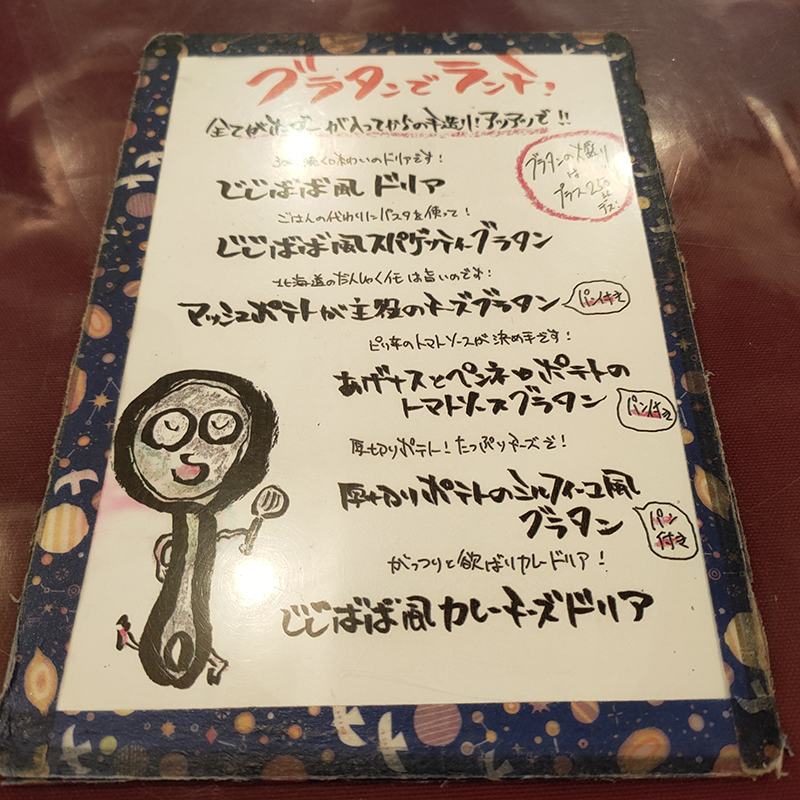 グラタンでランチ!
全てがオーダーが入ってからの手造り!アツアツで!!
グラタンの大盛り
は
プラス250
円
デス。
続く味わいのドリアです!
じじばば風ドリア
ごはんの代わりにパスタを使って!
じじばば風スパゲッティーグラタン
北海道のだんしゃくイモは旨いのです!
マッシュポテトが主役のチーズグラタン
パン付き
ピリ辛のトマトソースが決め手です!
あげナスとペンネとポテトの
トマトソースグラタン
パン付き
厚切りポテト!たっぷりチーズで!
厚切りポテトのミルフィーユ風
グラタン
パン
付き
がっつりと欲ばりカレードリア!
じじばば風カレーチーズドリア